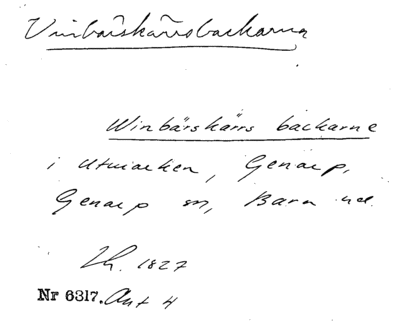 Vinbärskärrsbackarna
Winbärskärrs backarne
i Utmarken, Genarp,
Genarp sn, Bara hd.
Lh. 1827
Nr 6317. Akt 4